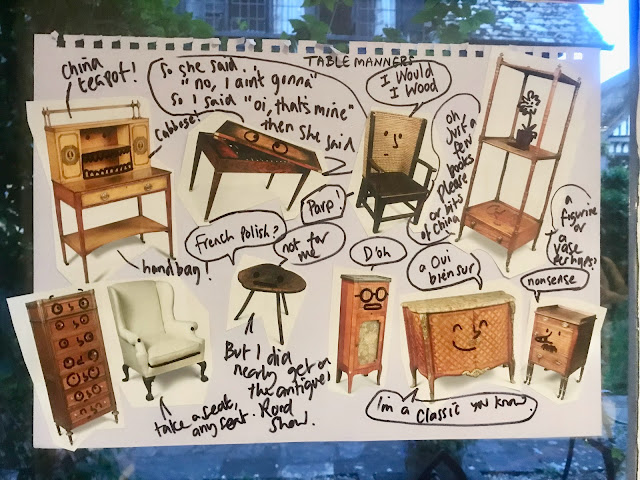 TABLE MANNERS
China
teapot!
Cabbose!
handbag!
So she said...
"no, I ain't gonna"
So I said "oi, that's mine"
then she said
I Would
I Wood
Parp!
oh
just a
few
books
please
or bits
of China
a
figurine
or
a
vase
perhaps?
French Polish?
not for
me
D'oh
a Oui
bien sur
nonsense
But I did
nearly get on
the antiques
Road
Show.
take a seat,
any seat.
I'm a Classic you know.